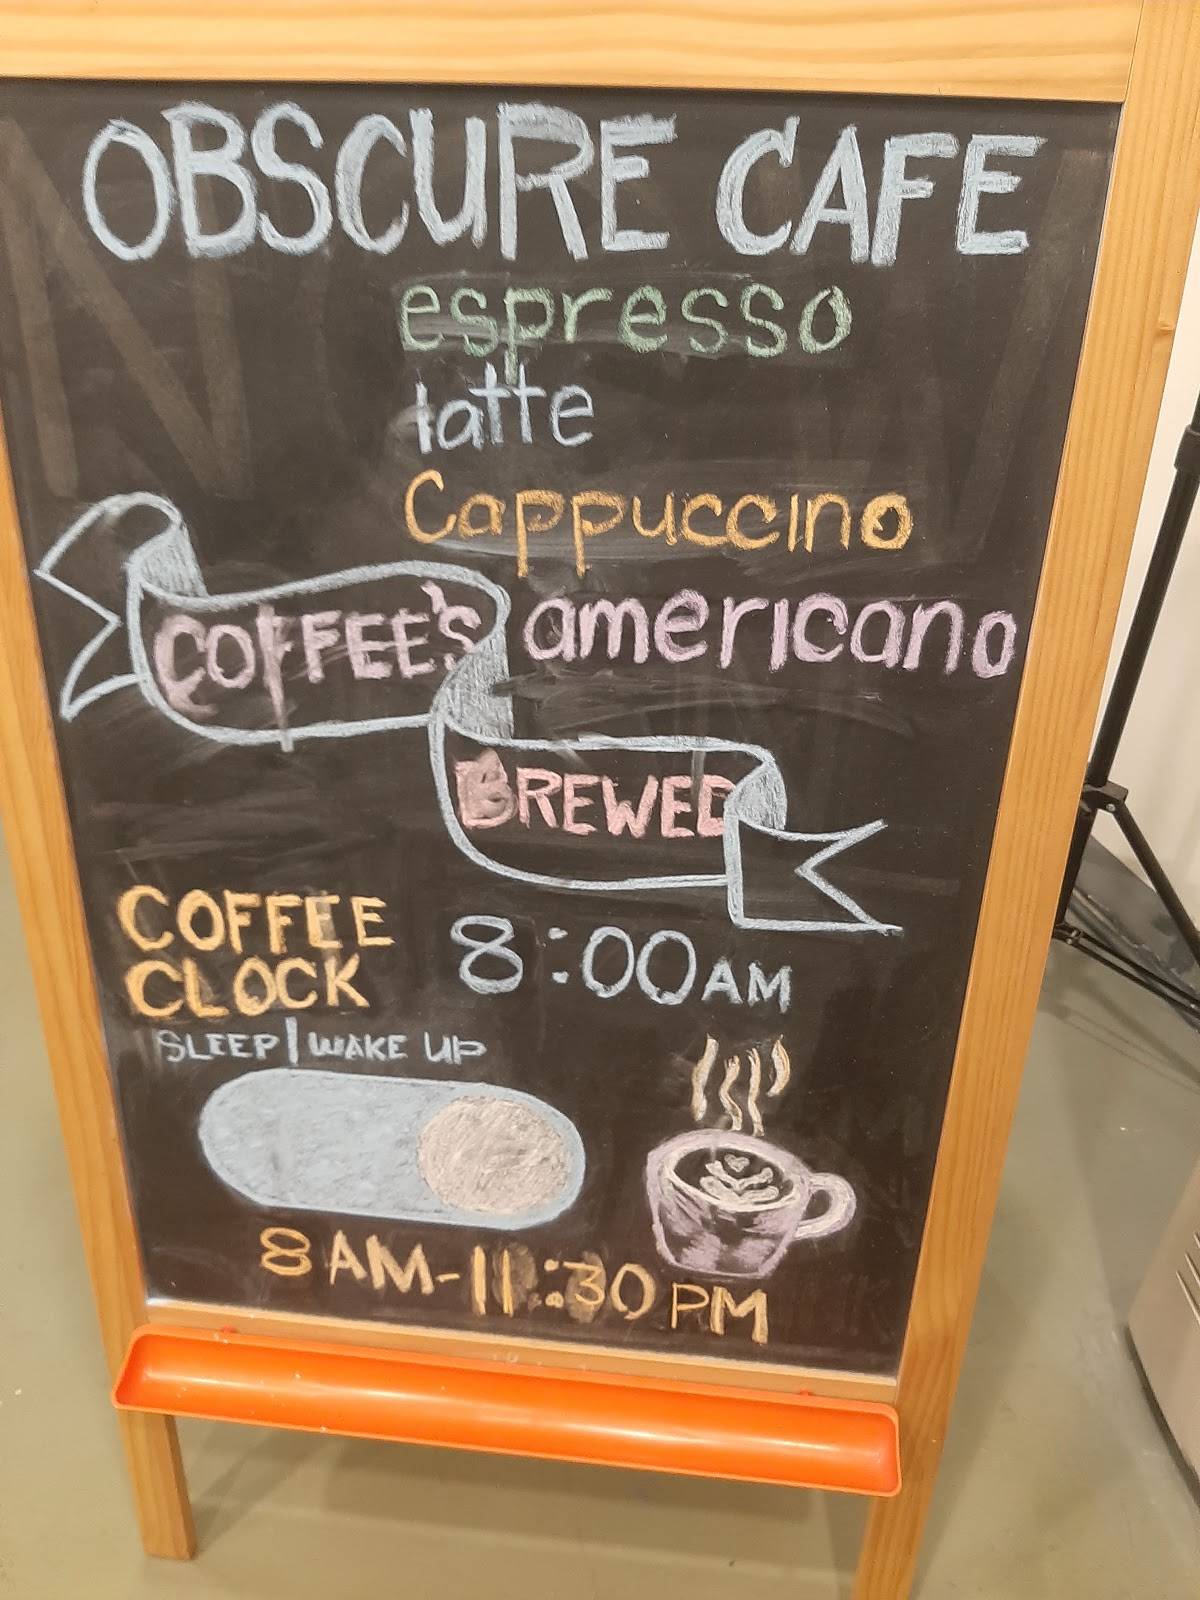 OBSCURE CAFE
espresso
latte
Cappuccino
COFFEE'S americano
BREWED
COFFEE
CLOCK
8:00AM
SLEEP|WAKE UP
8AM-11:30PM